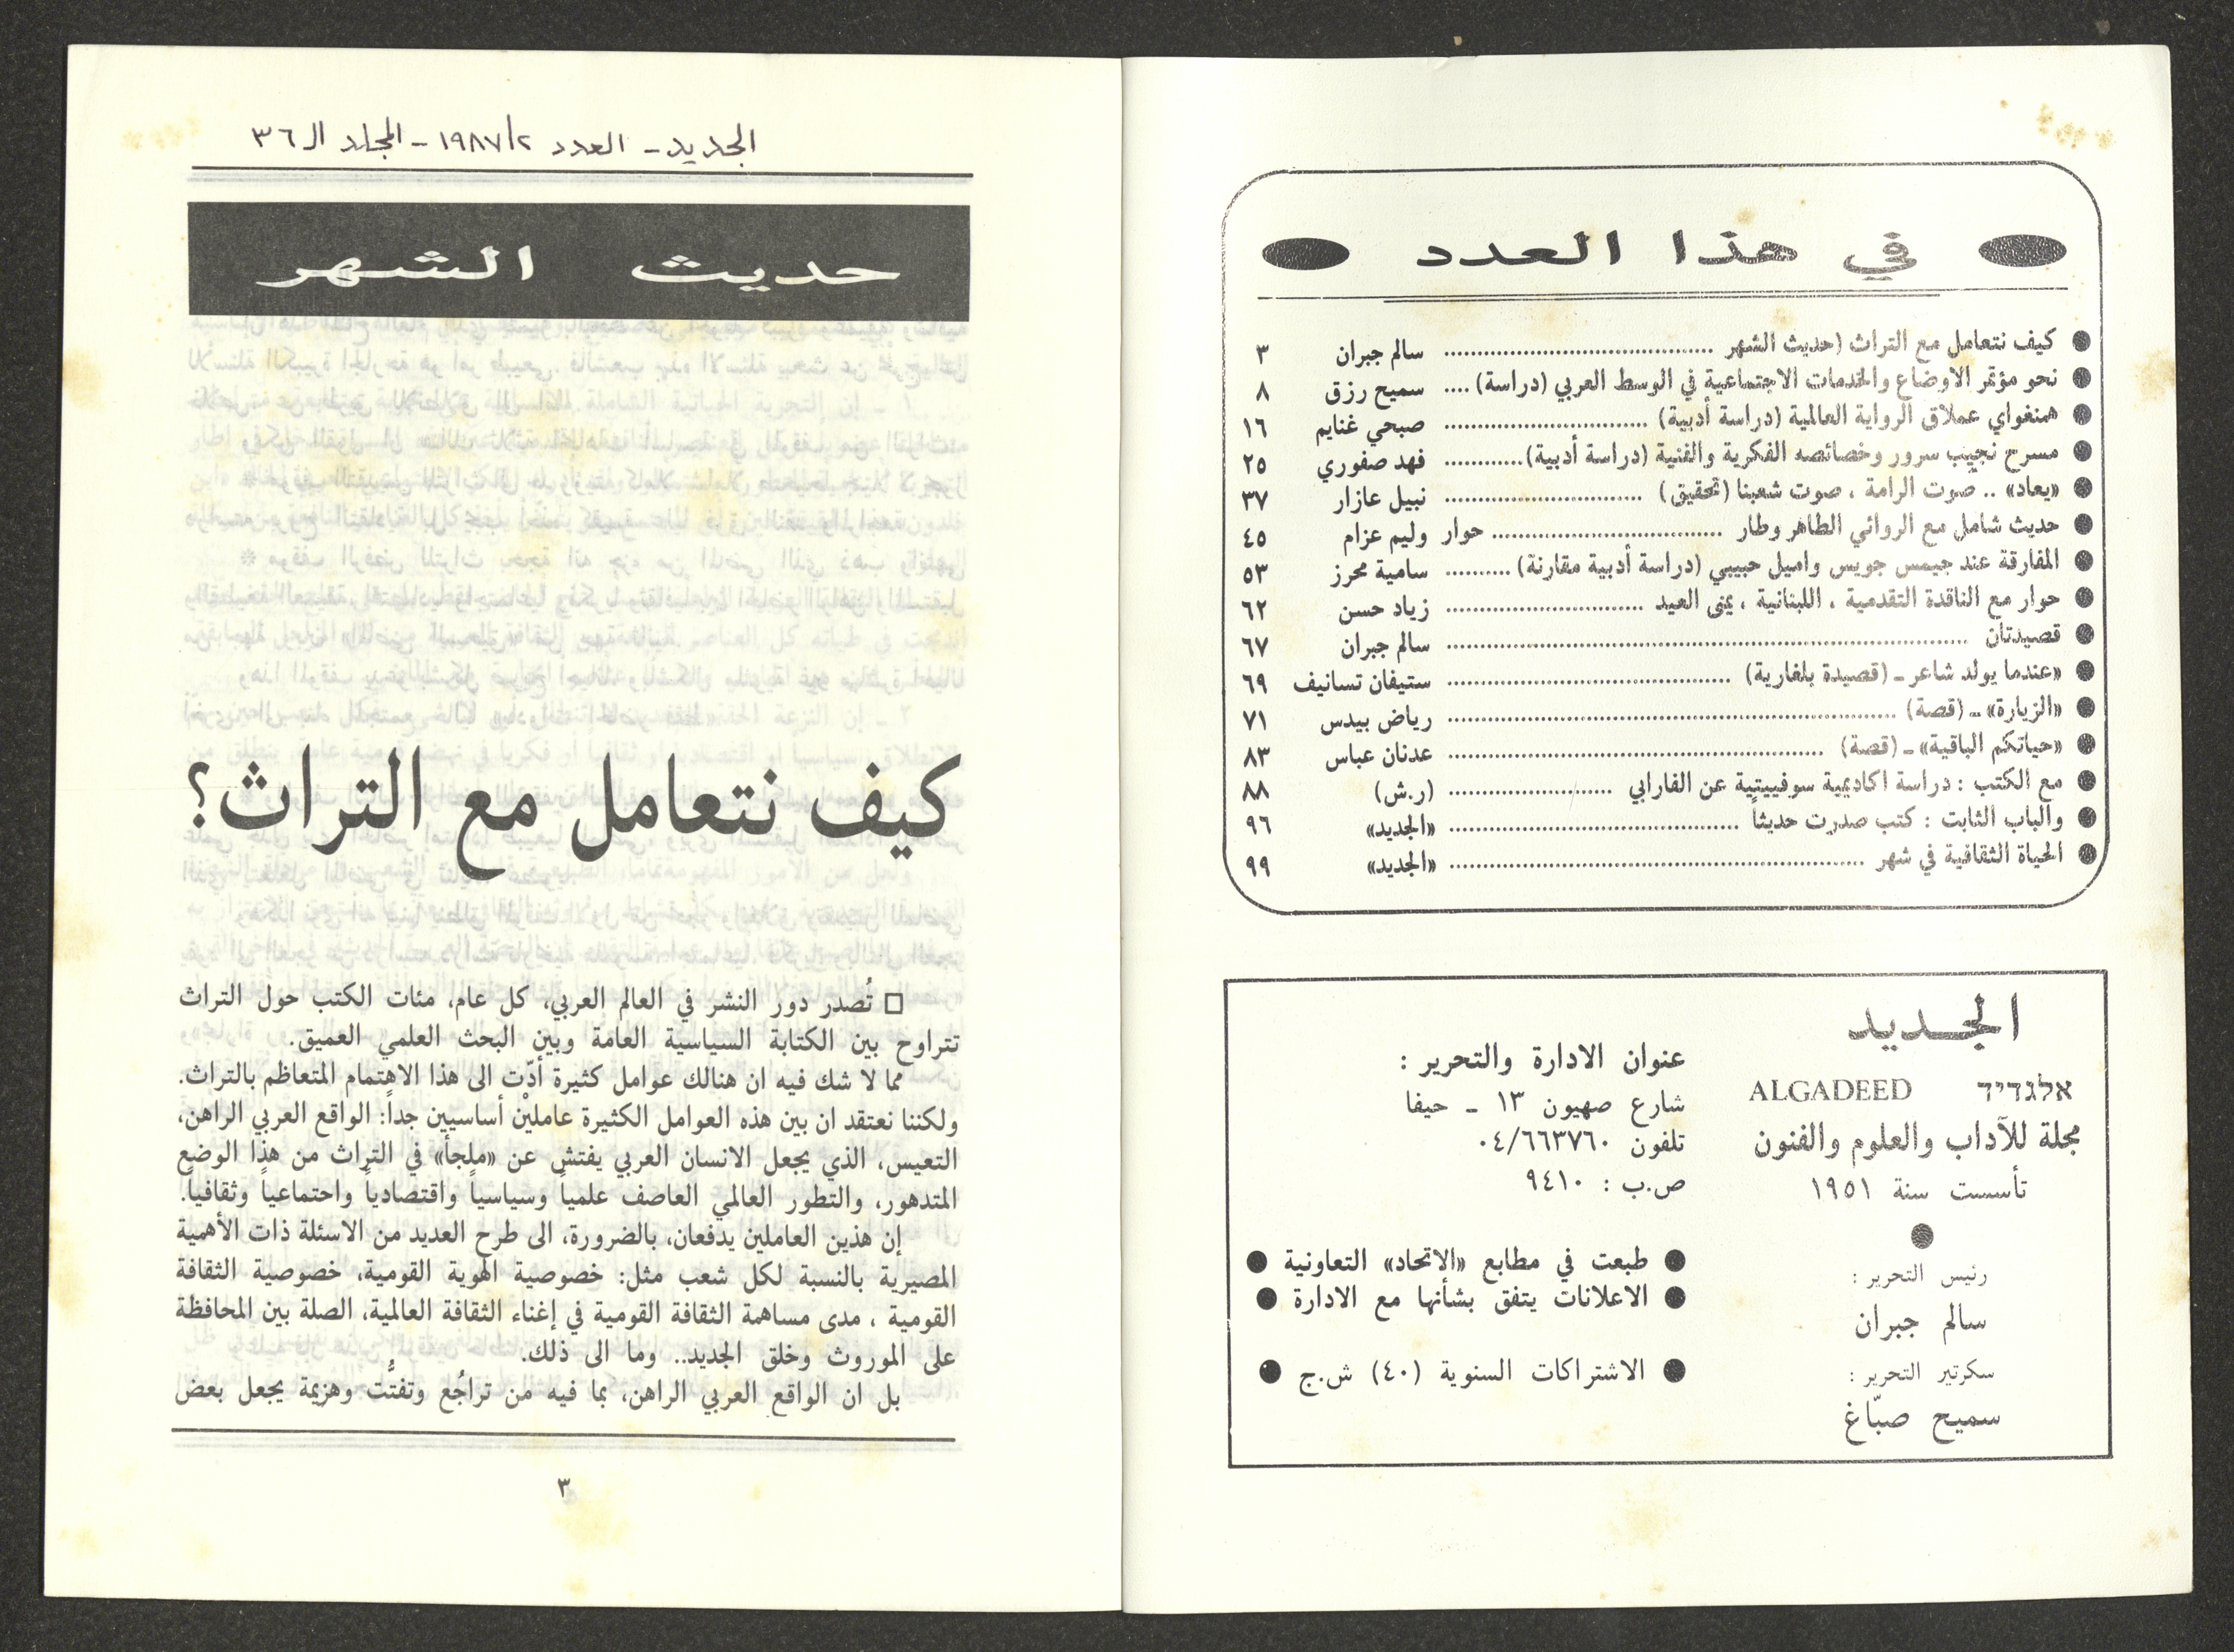 في هذا العدد
● كيف نتعامل مع التراث (حديث الشهر ........ سالم جبران ٣
● نحو مؤتمر الاوضاع والخدمات الاجتماعية في الوسط العربي (دراسة) .... سميح رزق ٨
● همنغواي عملاق الرواية العالمية (دراسة أدبية) ........ صبحي غنايم ١٦
● مسرح نجيب سرور وخصائصه الفكرية والفنية (دراسة أدبية) ........ فهد صفوري ٢٥
● «يعاد» .. صوت الرامة ، صوت شعبنا (تحقيق) ........ نبيل عازار ٣٧
● حديث شامل مع الروائي الطاهر وطار ........ حوار وليم عزام ٤٥
● المفارقة عند جيمس جويس واميل حبيبي (دراسة أدبية مقارنة) ........ سامية محرز ٥٣
● حوار مع الناقدة التقدمية ، اللبنانية ، يمنى العيد ........ زياد حسن ٦٢
● قصيدتان ........ سالم جبران ٦٧
● «عندما يولد شاعر ـ (قصيدة بلغارية) ........ ستيفان تسانيف ٦٩
● «الزيارة» ـ (قصة) ........ رياض بيدس ٧١
● «حياتكم الباقية» ـ (قصة) ........ عدنان عباس ٨٣
● مع الكتب : دراسة اكاديمية سوفييتية عن الفارابي ........ (ر.ش) ٨٨
● والباب الثابت : كتب صدرت حديثاً ........ «الجديد» ٩٦
● الحياة الثقافية في شهر ........ «الجديد» ٩٩
الجديد
אלגדיד ALGADEED
مجلة للآداب والعلوم والفنون
تأسست سنة ١٩٥١
رئيس التحرير :
سالم جبران
سكرتير التحرير :
سميح صبّاغ
عنوان الادارة والتحرير :
شارع صهيون ١٣ ـ حيفا
تلفون ٠٤/٦٦٣٧٦٠
ص.ب : ٩٤١٠
● طبعت في مطابع «الاتحاد» التعاونية ●
● الاعلانات يتفق بشأنها مع الادارة ●
● الاشتراكات السنوية (٤٠) ش.ج ●
الجديد ـ العدد ١٩٨٧/٢ ـ المجلد الـ ٣٦
حديث الشهر
كيف نتعامل مع التراث؟
□ تُصدر دور النشر في العالم العربي، كل عام، مئات الكتب حول التراث
تتراوح بين الكتابة السياسية العامة وبين البحث العلمي العميق.
مما لا شك فيه ان هنالك عوامل كثيرة أدّت الى هذا الاهتمام المتعاظم بالتراث.
ولكننا نعتقد ان بين هذه العوامل الكثيرة عامليْن أساسيين جداً: الواقع العربي الراهن،
التعيس، الذي يجعل الانسان العربي يفتش عن «ملجأ» في التراث من هذا الوضع
المتدهور، والتطور العالمي العاصف علمياً وسياسياً واقتصادياً واحتماعياً وثقافياً.
إن هذين العاملين يدفعان، بالضرورة، الى طرح العديد من الاسئلة ذات الأهمية
المصيرية بالنسبة لكل شعب مثل: خصوصية الهوية القومية، خصوصية الثقافة
القومية ، مدى مساهمة الثقافة القومية في إغناء الثقافة العالمية، الصلة بين المحافظة
على الموروث وخلق الجديد.. وما الى ذلك.
بل ان الواقع العربي الراهن، بما فيه من تراجُع وتفتُّت وهزيمة يجعل بعض
٣